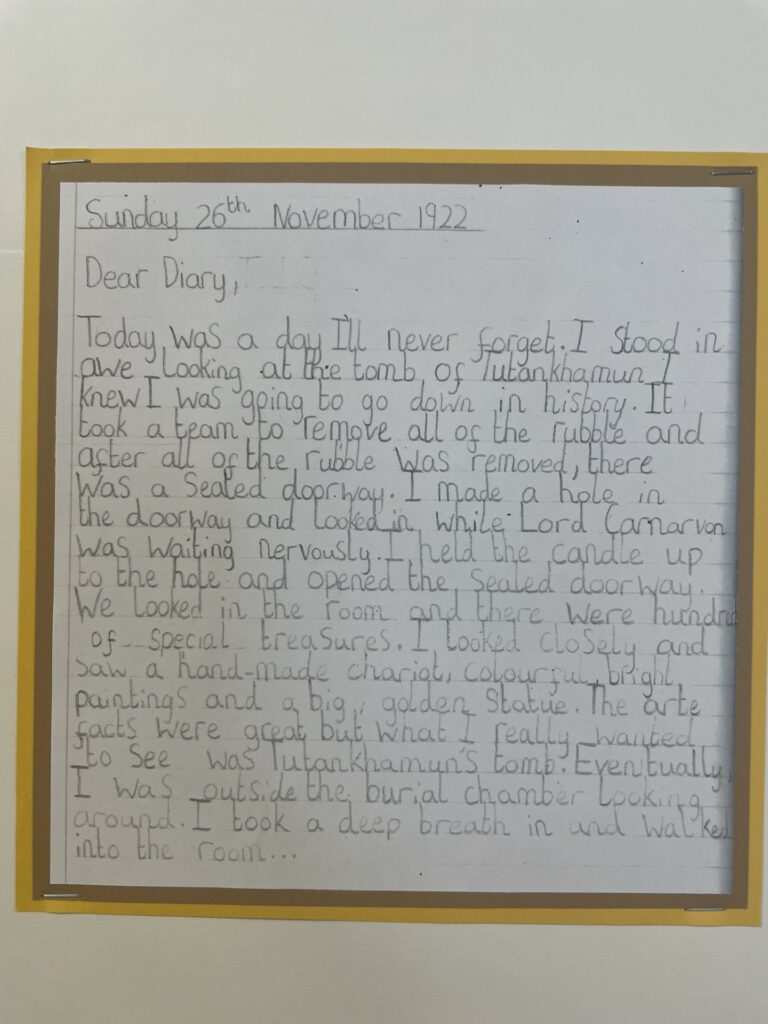 Sunday 26th November 1922
Dear Diary,
Today was a day I'll never forget. I stood in
awe looking at the tomb of Tutankhamun I
knew I was going to go down in history. It
took a team to remove all of the rubble and
after all of the rubble was removed, there
was a sealed doorway. I made a hole in
the doorway and looked in while Lord Carnarvon
was waiting nervously. I held the candle up
to the hole and opened the sealed doorway.
We looked in the room and there were hundred
of special treasures. I looked closely and
saw a hand-made chariot, colourful, bright
paintings and a big, golden statue. The arte
facts were great but what I really wanted
to see was Tutankhamun's tomb. Eventually
I was outside the burial chamber looking
around. I took a deep breath in and walked
into the room...